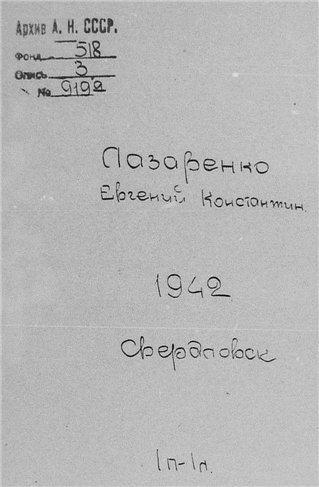 Архив А. Н. СССР.
Фонд 518
Опись 3
№ 9192
Лазаренко
Евгений Константин.
1942
Свердловск
1п-1л.